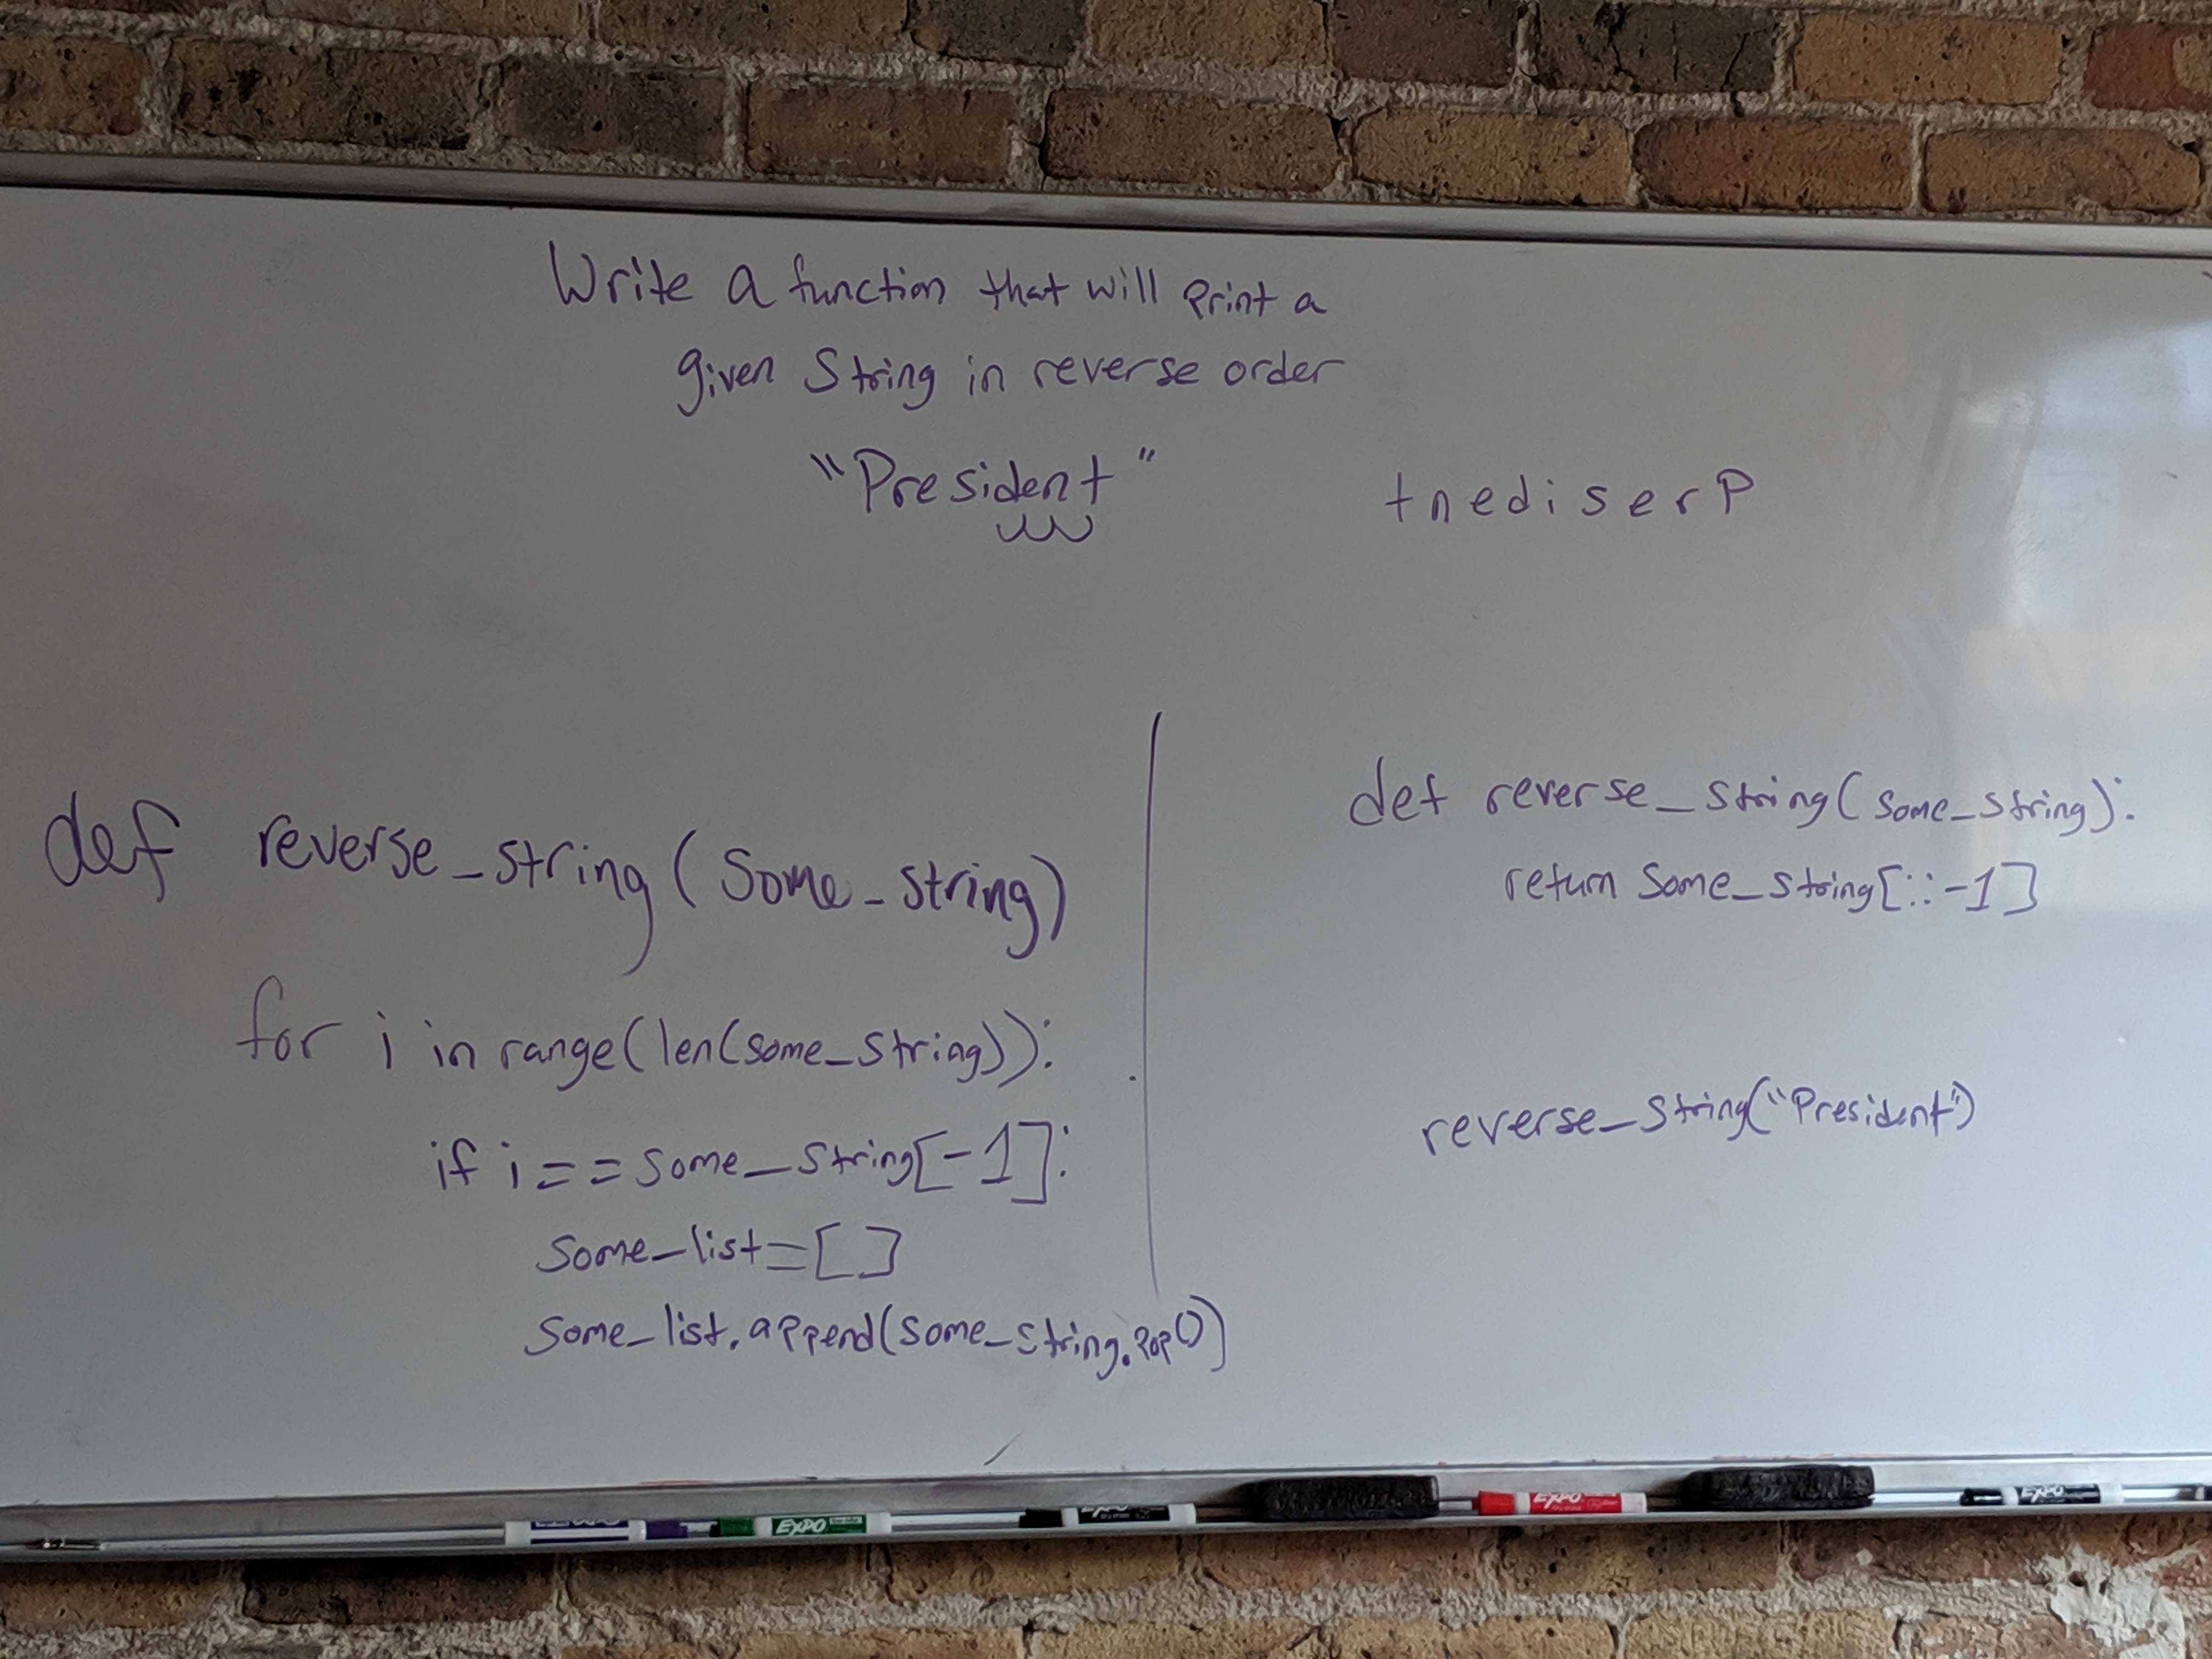 Write a function that will print a
given String in reverse order
"President"
tnediserP
def reverse_string(some_string)
for i in range(len(some_string)):
if i == some_string[-1]:
some_list=[]
some_list.append(some_string.pop())
def reverse_string(some_string):
return some_string[::-1]
reverse_string("President")
EXPO
EXPO
EXPO
EXPO